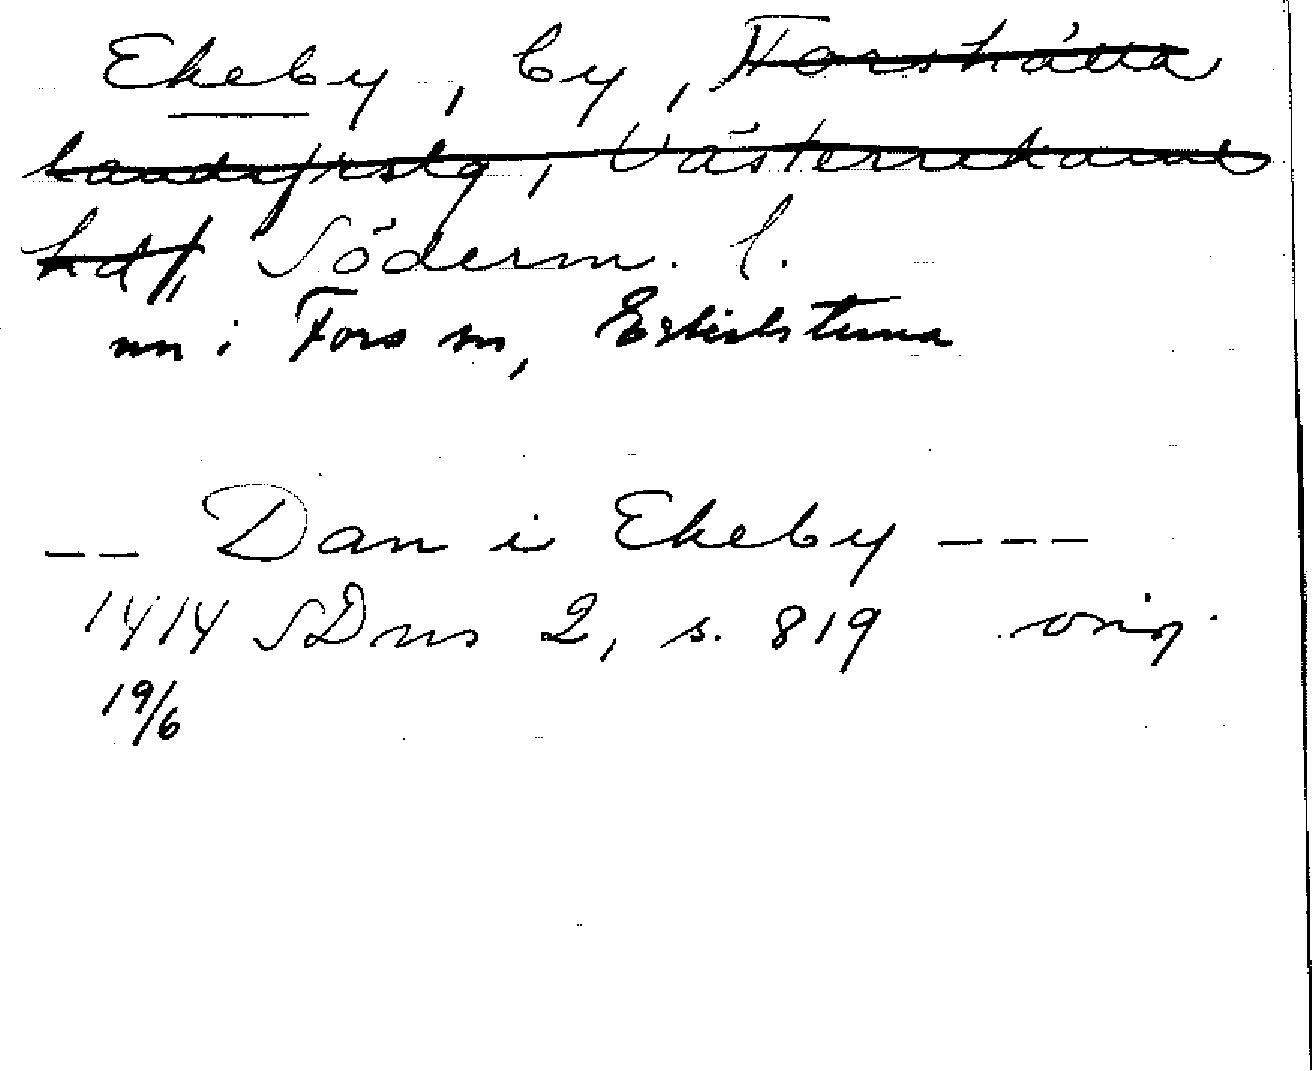 Ekeby, by, Forskälla
landsfrsg, Västerrekarne
hd, Söderm. l.
nu i Fors sn, Eskilstuna
-- Dan i Ekeby ---
1414 SDns 2, s. 819 orig.
19/6